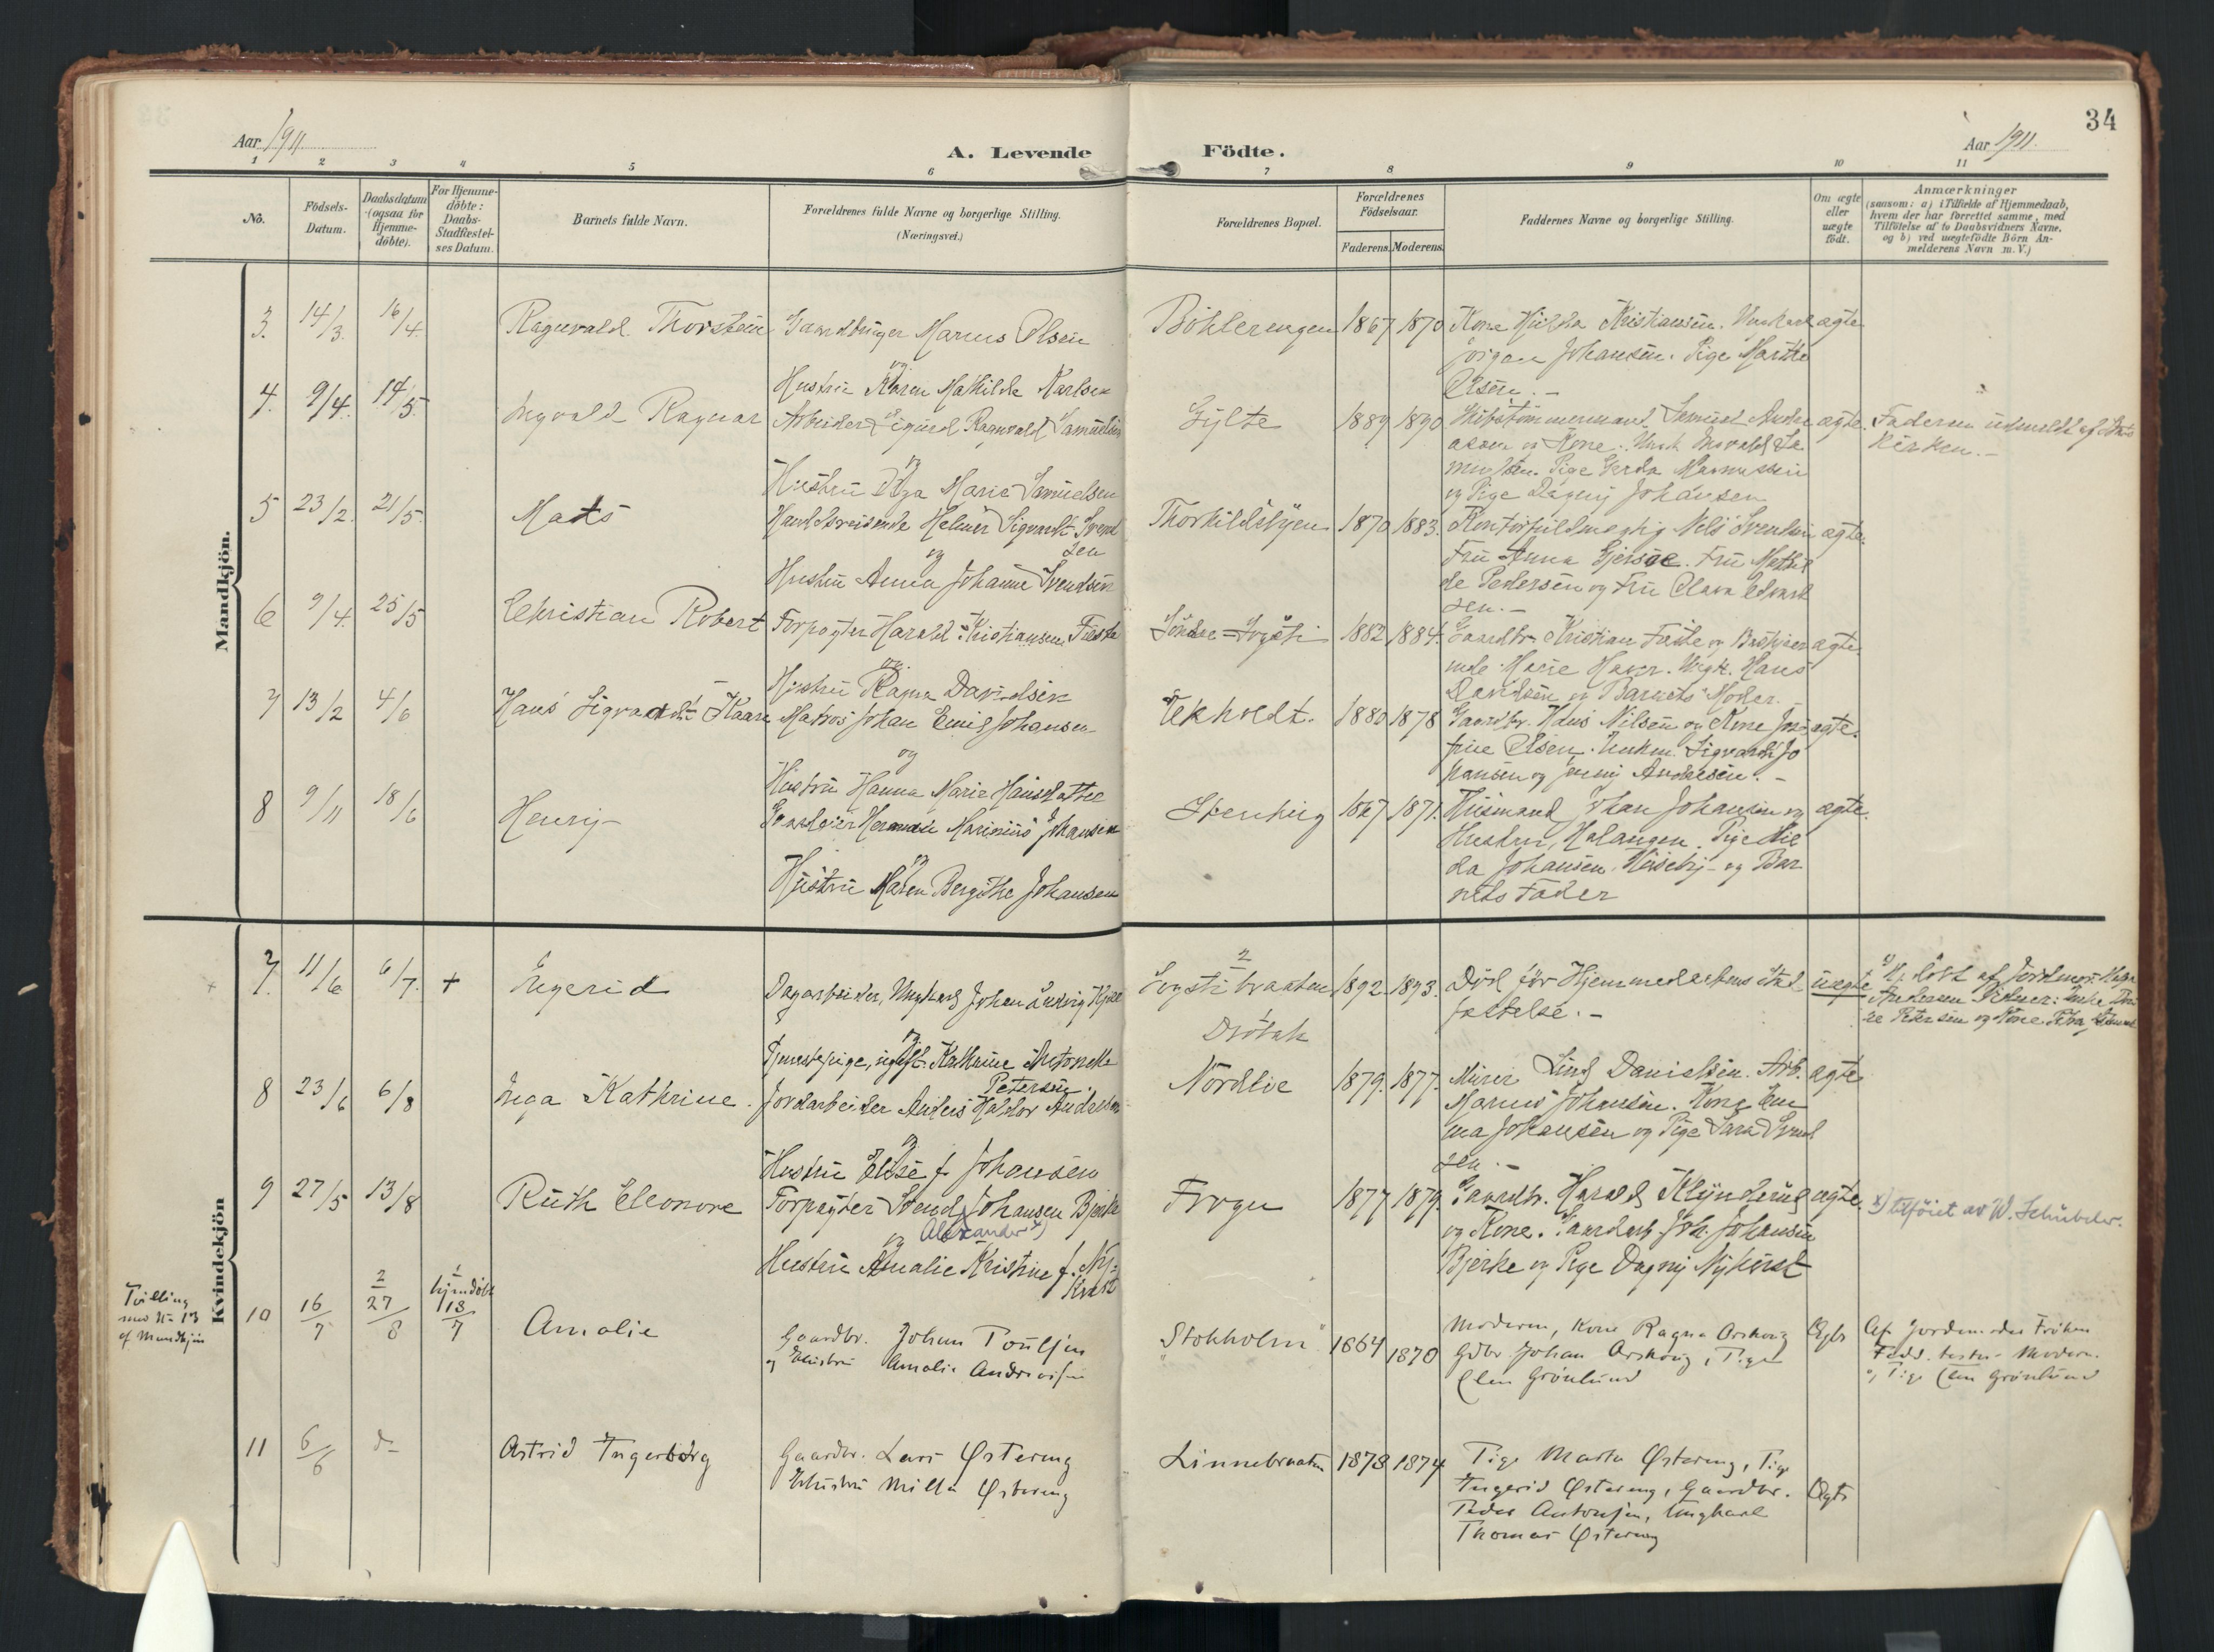 34
Aar 1911
A. Levende
Födte.
Aar 1911.
1 2 3 4 5 6 7 8 9 10 11
No.
Födsels-
Datum.
Daabsdatum
(ogsaa for
Hjemme-
döbte).
For Hjemme-
döbte:
Daabs-
Stadfæstel-
ses Datum.
Barnets fulde Navn.
Forældrenes fulde Navne og borgerlige Stilling.
(Næringsvei.)
Forældrenes Bopæl.
Forældrenes
Födselsaar.
Faderens. Moderens.
Faddernes Navne og borgerlige Stilling.
Om ægte
eller
uægte
födt.
Anmærkninger
(saasom: a) i Tilfælde af Hjemmedaab,
hvem der har forrettet samme, med
Tilföielse af to Daabsvidners Navne.
og b) ved uægtefödte Börn An-
melderens Navn m. V.)
Mandkjön.
3. 14/3. 16/4. Ragnvald Thorstein
Gaardbruger Marius Olsen
og
Hustru Karen Mathilde Karlsen
Böhlerengen 1867 1870
Kone Hulda Kristiansen. Ungkarl
Jörgen Johansen. Pige Marthe
Olsen. -
ægte
4. 9/4. 14/5. Ingvald Ragnar
Arbeider Sigurd Ragnvald Samuelsen
og
Hustru Olga Marie Samuelsen
Gylte 1889 1890
Skibstömmermand Samuel Andre
asen og Kone. Ungk. Ingvald Sa
muelsen. Pige Gerda Magnussen
og Pige Dagny Johansen
ægte.
Faderen udmeldt af Stats
kirken. -
5 23/2. 21/5. Mats
Handelsreisende Helmer Sigvardt Svend
sen
og
Hustru Anna Johanne Svendsen
Thorkildsbyen 1870 1883.
Kontorfuldmægtig Nils Svendsen
Fru Anna Gjersöe. Fru Mathil
de Pedersen og Fru Clara Edvard
sen. -
ægte.
6 9/4. 25/5 Christian Robert
Forpagter Harald Kristiansen Fæste
og
Hustru Ragna Davidsen
Söndre=Sogsti 1882 1884.
Gaardbr. Kristian Fæste og Bestyrer
inde Marie Haver. Ungk. Hans
Davidsen og Barnets Moder. -
ægte.
7 13/2 4/6 Hans Sigvardt Kaare
Matros Johan Emil Johansen
og
Hustru Hanna Marie Hansdatter
Ekholdt. 1880 1878
Gaardbr. Hans Nilsen og Kone Jose
fine Olsen. Ungk. Sigvardt Jo
hansen og Jenny Andresen. -
ægte.
8 9/11 18/6 Henry -
Gaardeier Herman Marinius Johansen
og
Hustru Maren Bergithe Johansen
1867 1871.
Husmand Johan Johansen og
Hustru, Halangen. Pige Hil
da Johansen. Huseby - og Bar
nets Fader
ægte.
Kvindekjön
7. 11/6 6/7. + Ingerid
Dagarbeider, Ungkarl Johan Ludvig
og
Tjenestepige, ugift. Kathrine Antonette
Petersen.
2
Sogstibraaten
1
Dröbak
1892. 1893.
Död för Hjemmedaabens Stad
fæstelse. -
uægte
8 23/6 6/8 Inga Kathrine.
Jordarbeider Anders Haldor Andersen
og
Hustru Elise f. Johansen
Nordlie 1879. 1877.
Murer Lind Danielsen. Arb.
Marius Johansen. Kone Em
ma Johansen og Pige Sara Svend
sen. -
ægte
9 27/5 13/8 Ruth Eleonore
Forpagter Svend Johansen Bjerke
Alexander x)
og
Hustru Amalie Kristine f. Ny-
kvist
Frogn 1877 1879.
Gaardbr. Harald Klynderud
og Kone. Gaardarb. Joh. Johansen
Bjerke og Pige Dagny Nykvist
ægte.
x) tilföiet av W. Schübeler.
Tvilling
med No 13
af Mandkjön
10 16/7 2 27/8 1 hjemdöbt 18/7 Amalie
Gaardbr. Johan Poulsen
og Hustru Amalie Andreasen
"Stokholm" 1864 1870
Moderen, Kone Ragna Orskoug
Gdbr. Johan Orskoug, Pige
Elen Grönlund
Ægte
Af Jordemoder Fröken
Moderen.
og Pige Elen Grönlund
11 6/6 do Astrid Ingeborg
Gaardbr. Lars Østereng
Hustru Milla Østereng
Linnebraaten 1873 1874
Pige Marta Østereng, Pige
Ingerid Østereng, Gaardbr.
Peder Antonsen, Ungkarl
Thomas Østereng
Ægte